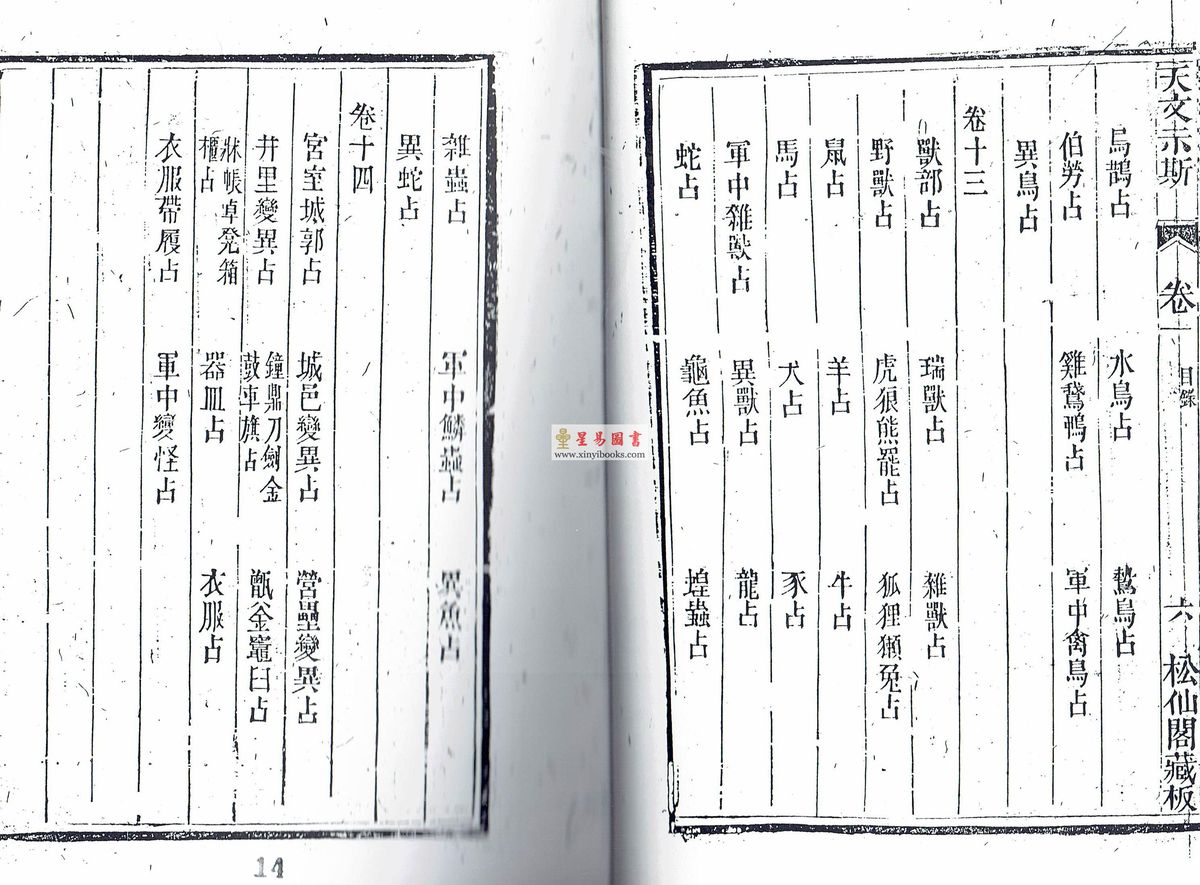 天文未斯 卷一 目錄 六 松仙閣藏板
烏鵲占 水鳥占 鷙鳥占
伯勞占 雞鶩鴨占 軍中禽鳥占
異鳥占
卷十三
獸部占 瑞獸占 雜獸占
野獸占 虎狼熊羆占 狐狸獺兔占
鼠占 羊占 牛占
馬占 犬占 豕占
軍中雜獸占 異獸占 龍占
蛇占 龜魚占 蝗蟲占
雜蟲占 軍中鱗蟲占 異魚占
異蛇占
卷十四
宮室城郭占 城邑變異占 營壘變異占
井里變異占 鐘鼎刀劍金鼓車旗占 甑釜竈臼占
牀帳卓凳箱櫃占 器皿占 衣服占
衣服帶履占 軍中變怪占
14
星易圖書
www.xinyibooks.com